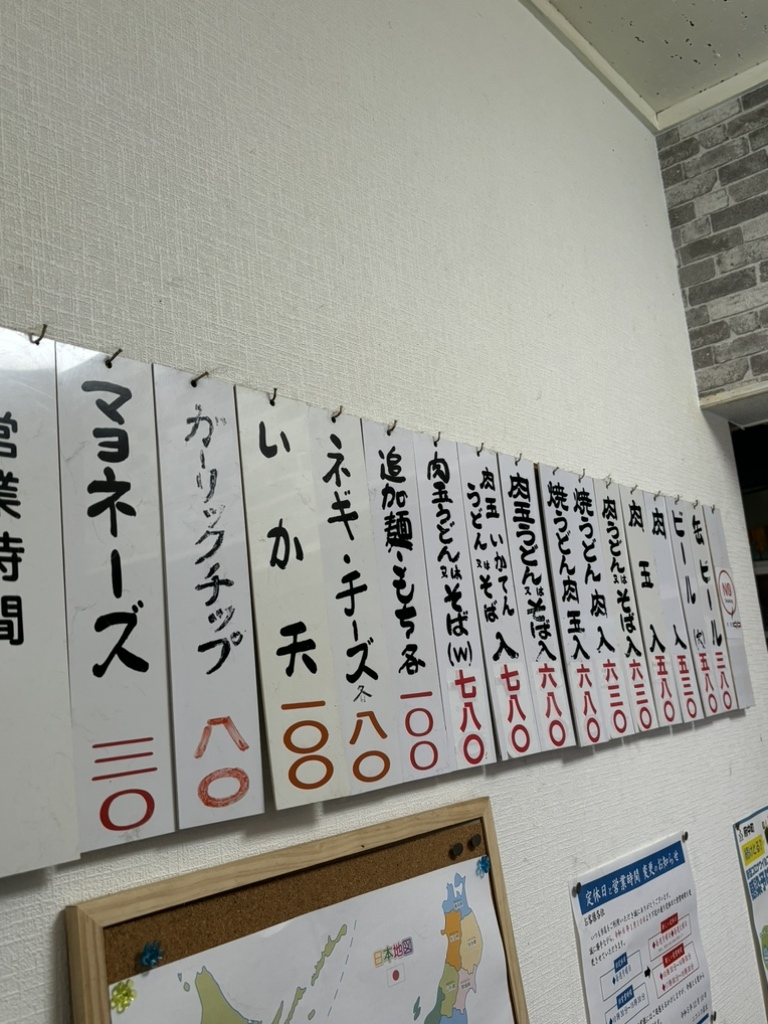 NO
缶ビール 三八〇
ビール 五八〇
肉入 五三〇
肉玉入 五八〇
肉うどん又はそば入 六三〇
焼うどん肉入 六三〇
焼うどん肉玉入 六八〇
肉玉うどん又はそば入 六八〇
肉玉いかてん
うどん又はそば入 七八〇
肉玉うどん又はそば(W) 七八〇
追加麺・もち各 一〇〇
ネギ・チーズ各 八〇
いか天 一〇〇
ガーリックチップ 八〇
マヨネーズ 三〇
営業時間
日本地図
定休日と営業時間 変更のお知らせ
お客様各位